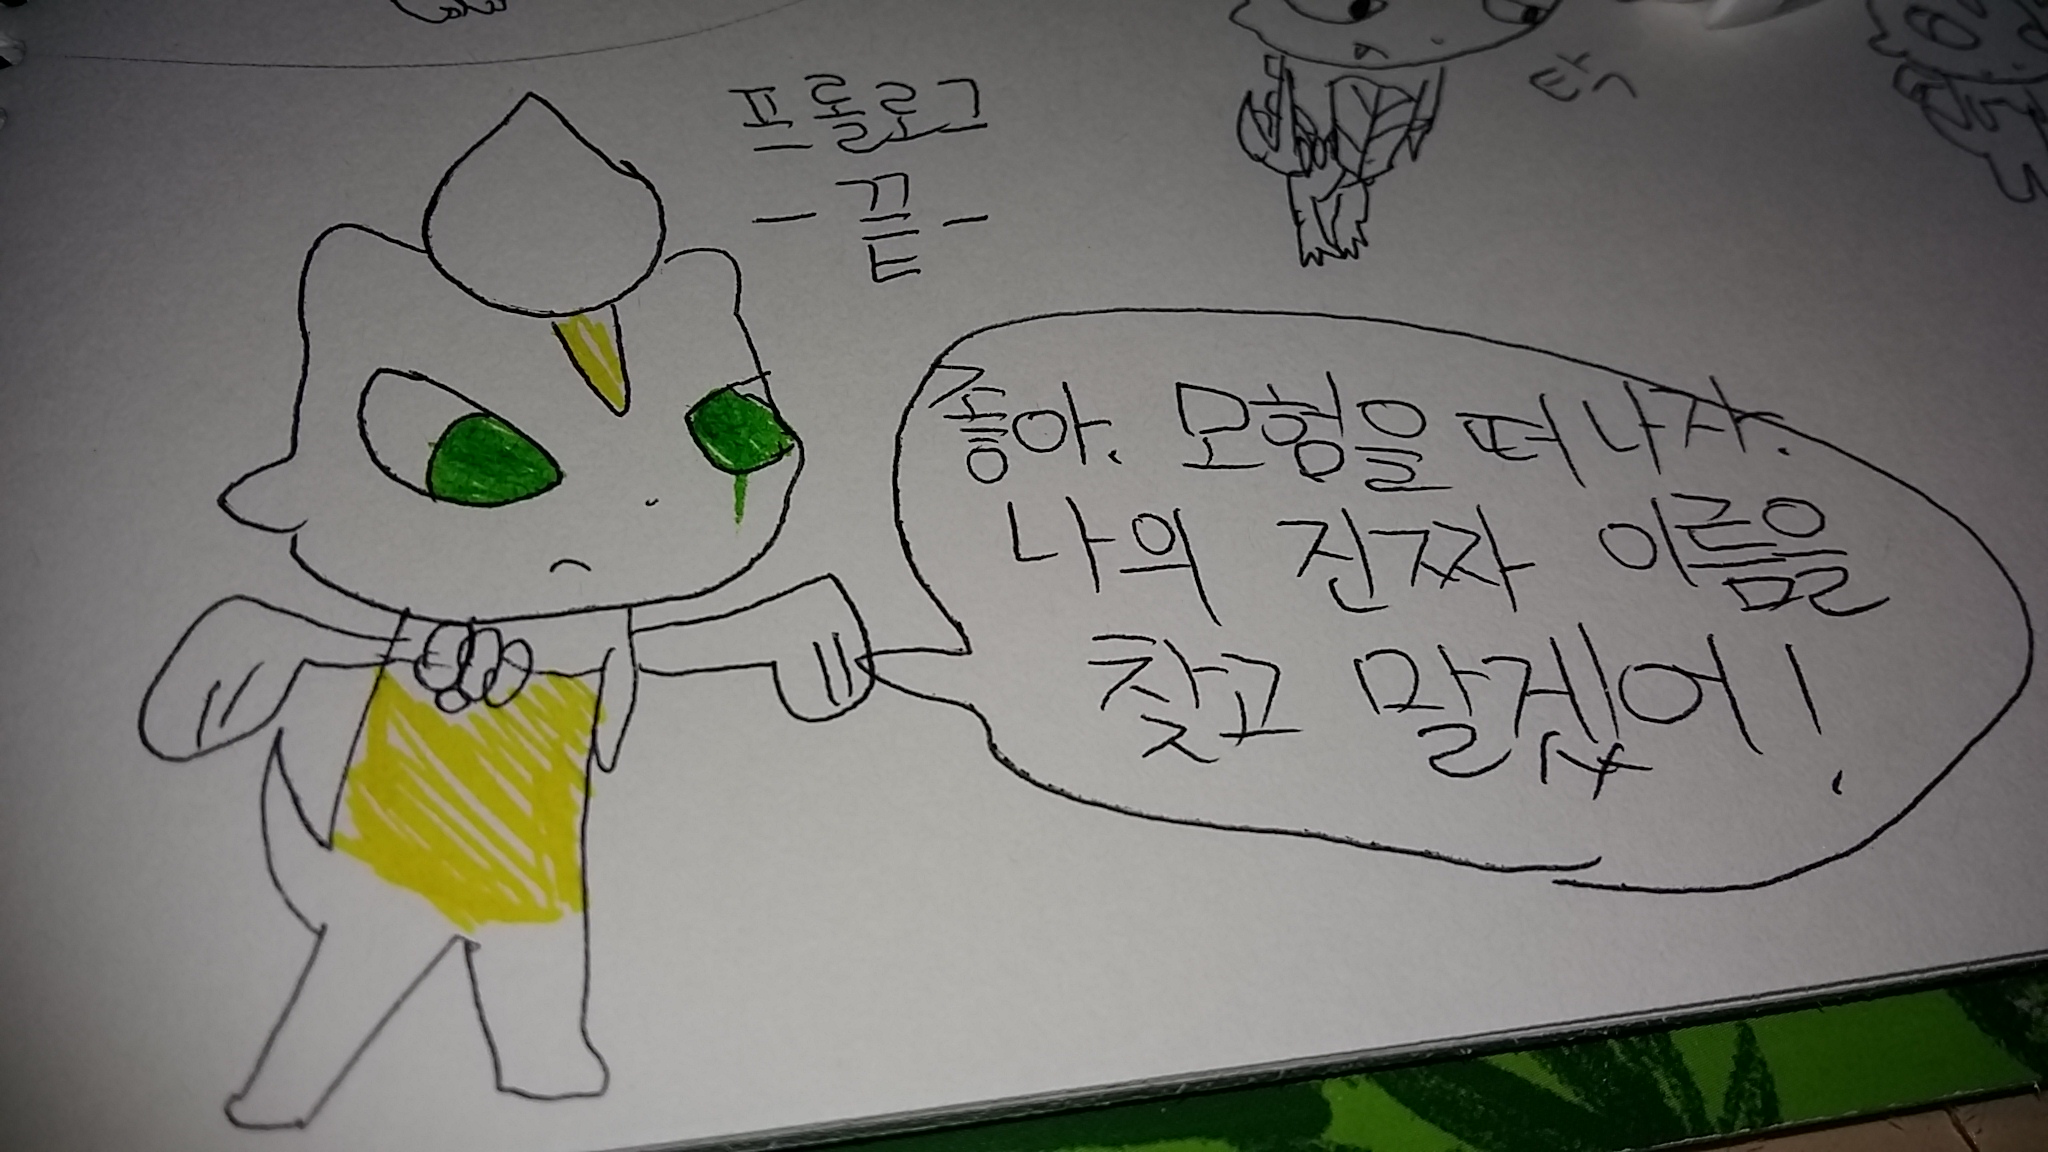 프롤로그
- 끝 -
탁
좋아. 모험을 떠나자.
나의 진짜 이름을
찾고 말겠어!